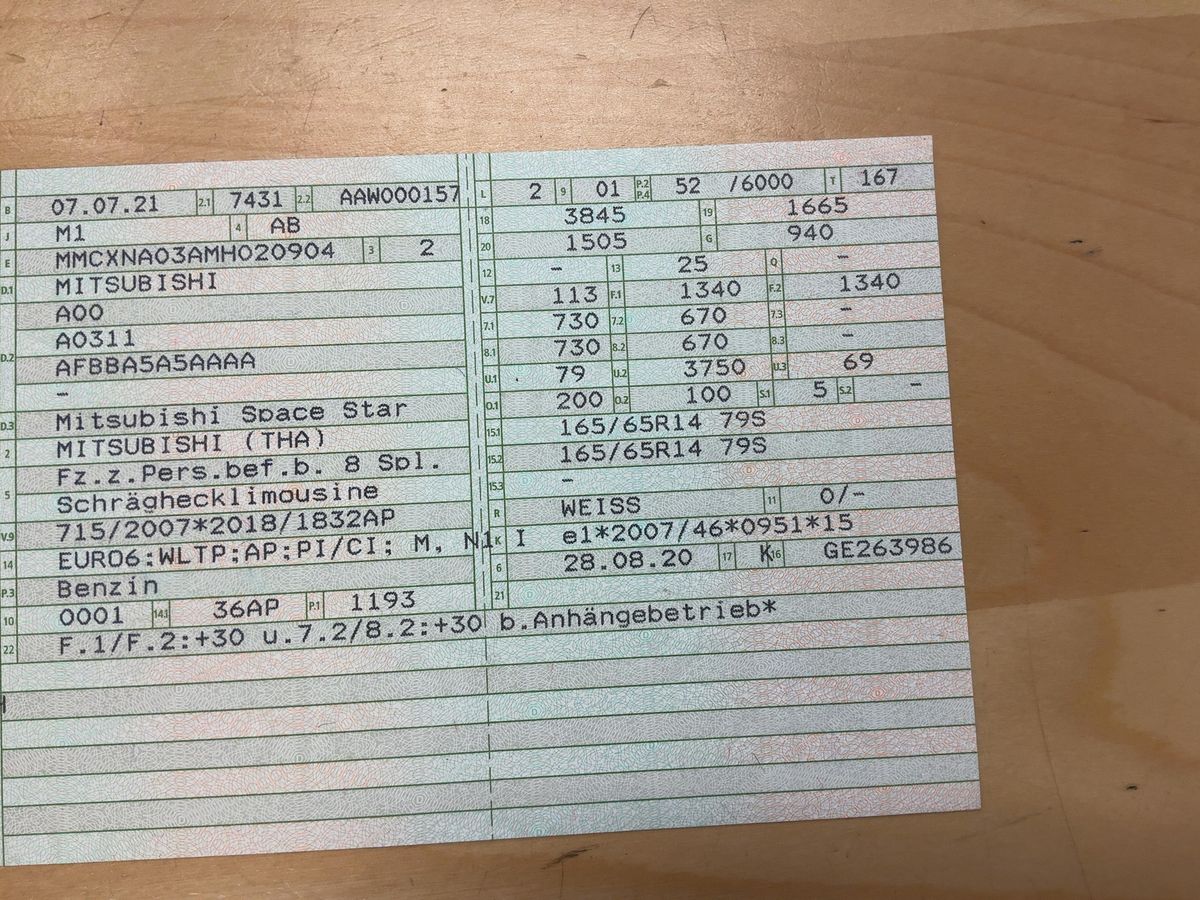 B 07.07.21 2.1 7431 2.2 AAW000157
J M1 4 AB
E MMCXNA03AMH020904 3 2
D.1 MITSUBISHI
A00
D.2 A0311
AFBBA5A5AAAA
-
D.3 Mitsubishi Space Star
2 MITSUBISHI (THA)
Fz.z.Pers.bef.b. 8 Spl.
5 Schräghecklimousine
V.9 715/2007*2018/1832AP
14 EURO6;WLTP;AP;PI/CI; M, N1 I
P.3 Benzin
10 0001 14.1 36AP P.1 1193
22 F.1/F.2:+30 u.7.2/8.2:+30 b.Anhängebetrieb*
L 2 9 01 P.2 P.4 52 /6000 T 167
18 3845 19 1665
20 1505 G 940
12 - 13 25 Q -
V.7 113 F.1 1340 F.2 1340
7.1 730 7.2 670 7.3 -
8.1 730 8.2 670 8.3 -
U.1 79 U.2 3750 U.3 69
O.1 200 O.2 100 S.1 5 S.2 -
15.1 165/65R14 79S
15.2 165/65R14 79S
15.3 -
R WEISS 11 0/-
K e1*2007/46*0951*15
6 28.08.20 17 K 16 GE263986
21